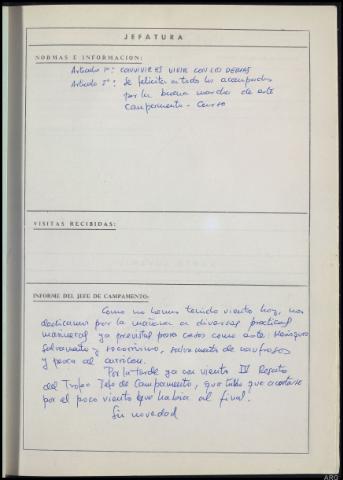 JEFATURA
NORMAS E INFORMACION:
Artículo 1º: CONVIVIR ES VIVIR CON LOS DEMAS
Artículo 2º: Se felicita a todos los acampados
por la buena marcha de este
Campamento - Curso
VISITAS RECIBIDAS:
INFORME DEL JEFE DE CAMPAMENTO:
Como no hemos tenido viento hoy, nos
dedicamos por la mañana a diversas prácticas
marineras ya previstas para casos como este:
salvamento y socorrismo, salvamento de naufragos
y pesca al currican.
Por la tarde ya con viento IV Regata
del Trofeo Jefe de Campamento, que tubo que acortarse
por el poco viento que había al final.
Sin novedad
ARG